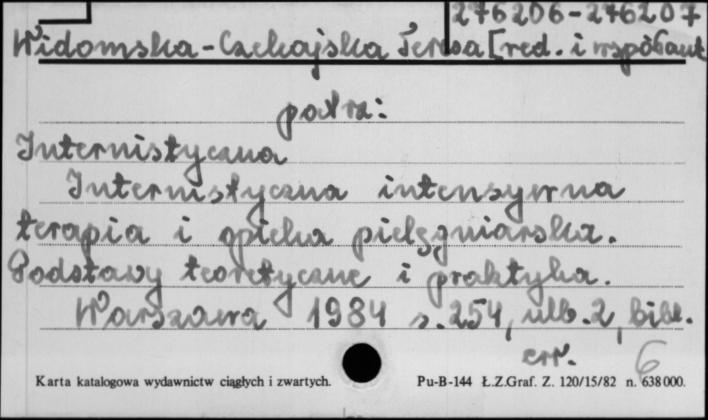 276206-276207
Widomska-Czekajska Teresa [red. i współaut
patrz:
Internistyczna
Internistyczna intensywna
terapia i opieka pielęgniarska.
Podstawy teoretyczne i praktyka.
Warszawa 1984 s. 254, nlb. 2, bibl.
err.
6
Karta katalogowa wydawnictw ciągłych i zwartych. Pu-B-144 Ł.Z.Graf. Z. 120/15/82 n. 638 000.